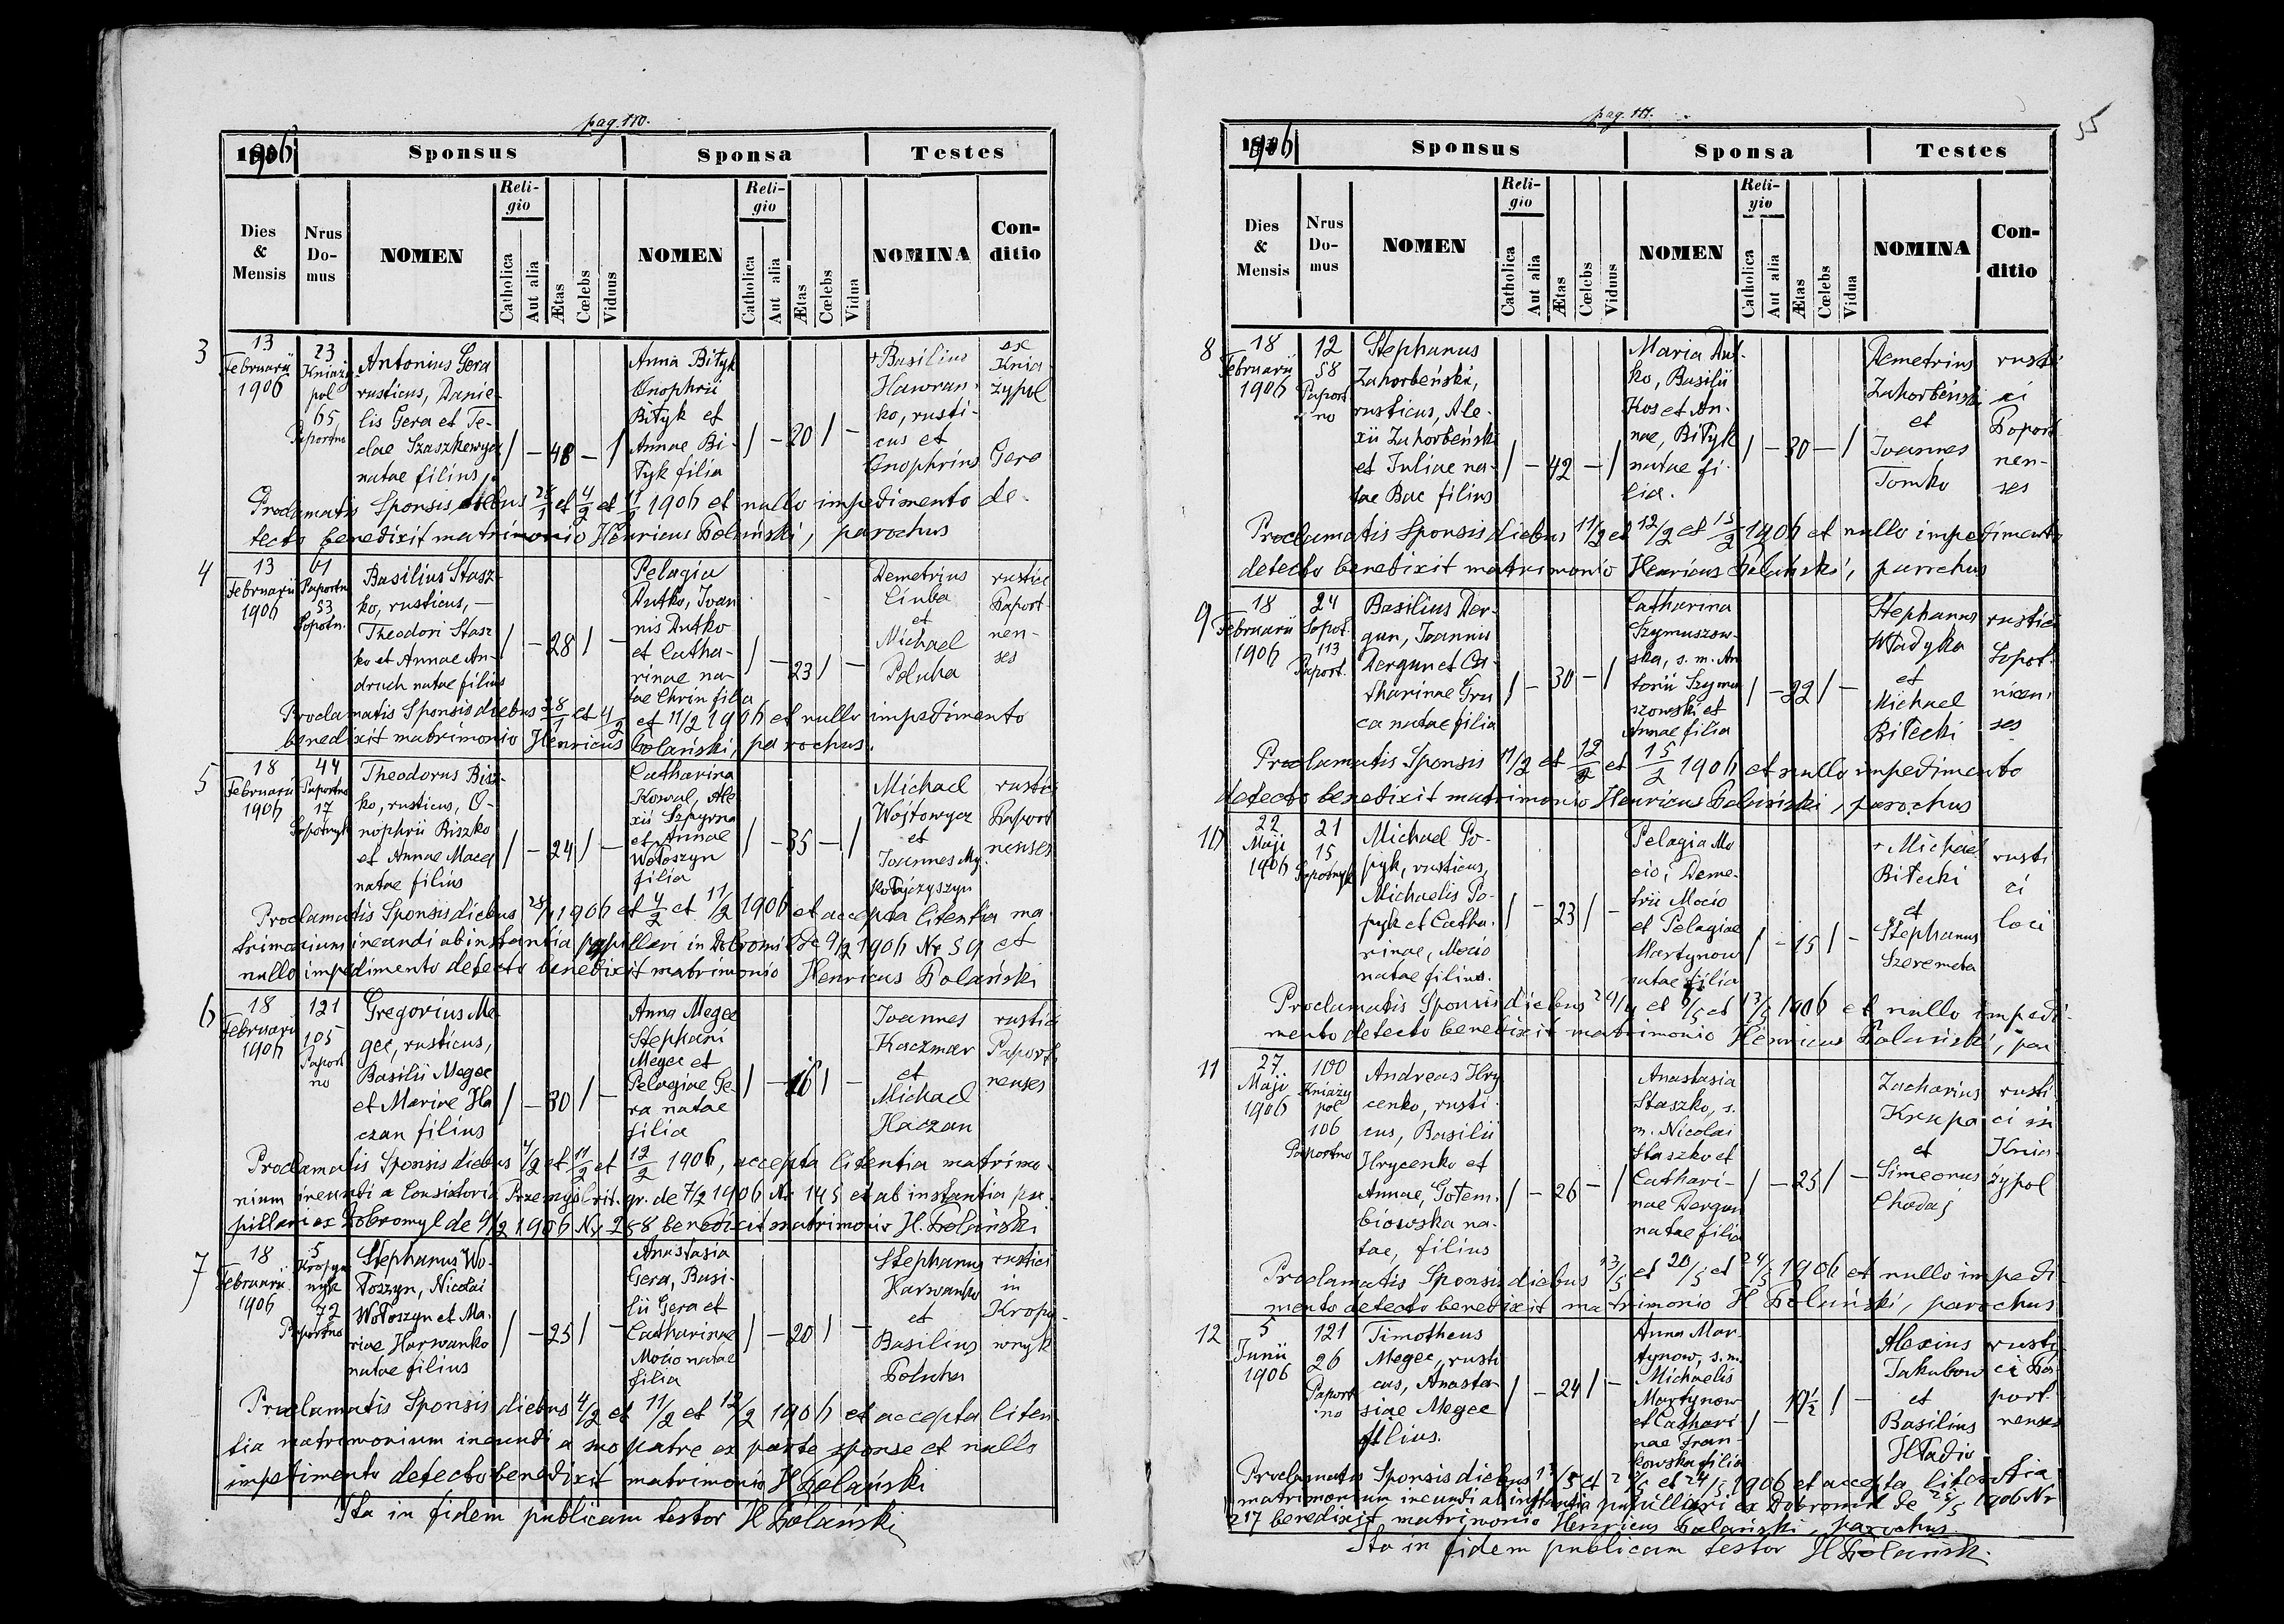 pag. 110.
1906
Sponsus
Sponsa
Testes
Dies & Mensis
Nrus Do- mus
NOMEN
Reli- gio
Catholica
Aut alia
Ætas
Cœlebs
Viduus
NOMEN
Reli- gio
Catholica
Aut alia
Ætas
Cœlebs
Vidua
NOMINA
Con- ditio
3
13
Februarii
1906
23
Kniaży
pol
65
Paportno
Antonius Gera
rusticus, Danie-
lis Gera et Te-
clae Szaszkewycz
natae filius
/ - 48 - /
Anna Bityk
Onophrii
Bityk et
Annae Bi-
tyk filia
/ - 20 / -
+ Basilius
Hawran-
ko, rusti-
cus et
Onophrius Gera
ex
Knia-
żypol
Proclamatis Sponsis diebus 28/1 et 4/2 et 11/2 1906 et nullo impedimento de-
tecto benedixit matrimonio Henricus Polański, parochus
4
13
Februarii
1906
61
Paportn
53
Sopotn.
Basilius Stasz-
ko, rusticus, -
Theodori Stasz
ko et Annae An-
druch natae filius
/ - 28 / -
Pelagia
Dutko, Ioan
nis Dutko
et Catha-
rinae na-
tae Chrin filia
/ - 23 / -
Demetrius
Ciuba
et
Michael
Poluha
rustici
Paport-
nen-
ses
Proclamatis Sponsis diebus 28/1 et 4/2 et 11/2 1906 et nullo impedimento
benedixit matrimonio Henricus Polański, parochus.
5
18
Februarii
1906
44
Paportno
17
Sopotnyk
Theodorus Bisz-
ko, rusticus, O-
nophrii Biszko
et Annae Macei
natae filius
/ - 24 / -
Catharina
Kowal, Ale
xii Szpyrna
et Annae
Wołoszyn
filia
/ - 35 - /
Michael
Wójtowycz
et
Joannes My-
kołajczyszyn
rustici
Paport
nenses
Proclamatis Sponsis diebus 28/1 1906 et 4/2 et 11/2 1906 et accepta licentia ma-
trimonium ineundi ab instantia pupillari in Dobromil de 9/2 1906 Nr 59 et
nullo impedimento detecto benedixit matrimonio Henricus Polański
6
18
Februarii
1906
121
105
Paport
no
Gregorius Me-
gec, rusticus,
Basilii Megec
et Mariae Ha
czan filius
/ - 30 / -
Anna Megec
Stephani
Megec et
Pelagiae Ge-
ra natae
filia
/ - 16 / -
Joannes
Kaczmar
et
Michael
Haczan
rustici
Paport-
nenses
Proclamatis Sponsis diebus 4/2 et 11/2 et 12/2 1906, accepta licentia matrimo-
nium ineundi a Consistorio Przemysl rit. gr. de 7/2 1906 Nr 145 et ab instantia pu-
pillari ex Dobromyl de 9/2 1906 Nr 258 benedixit matrimonio H. Polański
7
18
Februarii
1906
5
Kropyw
nyk
72
Paportno
Stephanus Wo-
łoszyn, Nicolai
Wołoszyn et Ma-
riae Harwanko
natae filius
/ - 25 / -
Anastasia
Gera, Basi-
lii Gera et
Catharinae
Mocio natae
filia
/ - 20 / -
Stephanus
Karwanko
et
Basilius
Poluha
rustici
in
Kropy-
wnyk
Proclamatis Sponsis diebus 4/2 et 11/2 et 12/2 1906 et accepta licen-
tia matrimonium ineundi a suo patre ex parte sponse et nullo
impedimento detecto benedixit matrimonio H Polański
Ita in fidem publicam testor H Polański
pag. 111.
55
1906
Sponsus
Sponsa
Testes
Dies & Mensis
Nrus Do- mus
NOMEN
Reli- gio
Catholica
Aut alia
Ætas
Cœlebs
Viduus
NOMEN
Reli- gio
Catholica
Aut alia
Ætas
Cœlebs
Vidua
NOMINA
Con- ditio
8
18
Februarii
1906
12
58
Paport
no
Stephanus
Zahorbeński,
rusticus, Ale-
xii Zahorbeński
et Juliae na-
tae Bac filius
/ - 42 - /
Maria Dut-
ko, Basilii
Kos et An-
nae, Bityk
natae fi-
lia.
/ - 30 - /
Demetrius
Zahorbeński
et
Joannes
Tomko
rusti
ci
Paport
nen-
ses
Proclamatis Sponsis diebus 11/2 et 12/2 et 15/2 1906 et nullo impedimento
detecto benedixit matrimonio Henricus Polański, parochus
9
18
Februarii
1906
24
Sopot.
113
Paport.
Basilius Der-
gun, Joannis
Dergun et Ca-
tharinae Gru
ca natae filia
/ - 30 - /
Catharina
Szymuszow-
ska, s. m. An
tonii Szymu
szowski et
Annae filia
/ - 22 / -
Stephanus
Władyka
et
Michael
Biłecki
rustici
Sopot-
nicen-
ses
Proclamatis Sponsis 11/2 et 12/2 et 15/2 1906 et nullo impedimento
detecto benedixit matrimonio Henricus Polański, parochus
10
22
Maji
1906
21
15
Sopotnyk
Michael Po-
pyk, rusticus,
Michaelis Po-
pyk et Catha-
rinae, Mocio
natae filius.
/ - 23 / -
Pelagia Mo
cio, Deme-
trii Mocio
et Pelagiae
Martynow
natae filia
/ - 15 / -
+ Michael
Biłecki
et
Stephanus
Szeremeta
rusti
ci
loci
Proclamatis Sponsis diebus 29/4 et 6/5 et 13/5 1906 et nullo impedi-
mento detecto benedixit matrimonio Henricus Polański, par
11
27.
Maji
1906
100
Kniaży
pol
106
Paportno
Andreas Hry
cenko, rusti-
cus, Basilii
Hrycenko et
Annae, Gołem-
biowska na-
tae, filius
/ - 26 - /
Anastasia
Staszko, s.
m. Nicolai
Staszko et
Cathari-
nae Dergun
natae filia
/ - 25 / -
Zacharius
Krupa
et
Simeonus
Chodaj
rusti
ci in
Knia-
żypol
Proclamatis Sponsis diebus 13/5 et 20/5 et 24/5 1906 et nullo impedi-
mento detecto benedixit matrimonio H Polański, parochus
12
5
Junii
1906
121
26
Paport
no
Timotheus
Megec, rusti
cus, Anasta-
siae Megec
filius.
/ - 24 / -
Anna Mar-
tynow, s. m.
Michaelis
Martynow
et Cathari
nae Fran-
kowska filia
/ - 19 1/2 / -
Alexius
Jakubow
et
Basilius
Hładio
rusti
ci Pa-
port-
nenses
Proclamatis Sponsis diebus 13/5 et 20/5 et 24/5 1906 et accepta licentia
matrimonium ineundi ab instantia pupillari ex Dobromil de 25/5 1906 Nr
217 benedixit matrimonio Henricus Polański, parochus
Ita in fidem publicam testor H Polański.